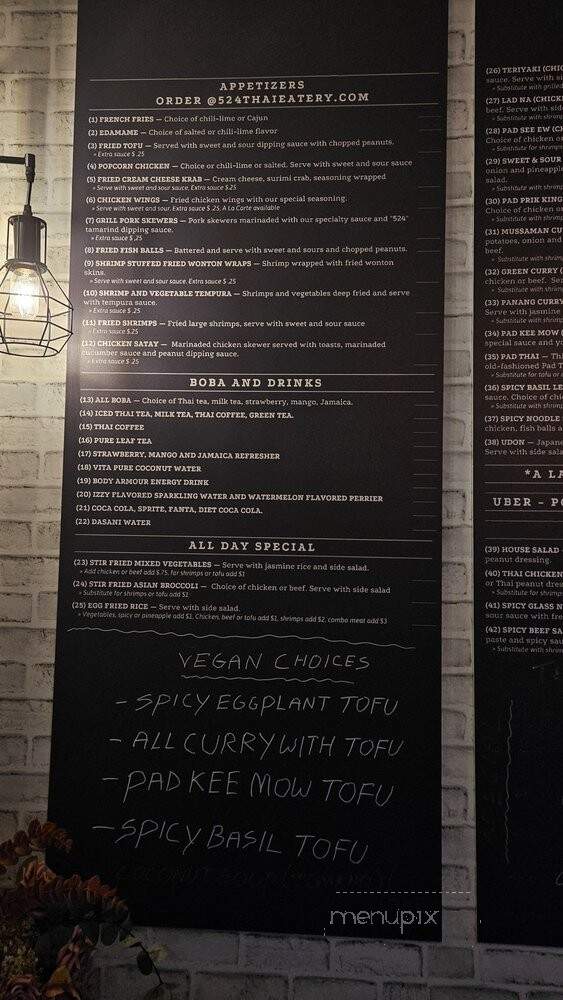 APPETIZERS
ORDER @524THAIEATERY.COM
(1) FRENCH FRIES — Choice of chili-lime or Cajun
(2) EDAMAME — Choice of salted or chili-lime flavor
(3) FRIED TOFU — Served with sweet and sour dipping sauce with chopped peanuts.
» Extra sauce $ .25
(4) POPCORN CHICKEN — Choice or chili-lime or salted. Serve with sweet and sour sauce
(5) FRIED CREAM CHEESE KRAB — Cream cheese, surimi crab, seasoning wrapped
» Serve with sweet and sour sauce. Extra sauce $ .25
(6) CHICKEN WINGS — Fried chicken wings with our special seasoning.
» Serve with sweet and sour. Extra sauce $ .25. A La Carte available
(7) GRILL PORK SKEWERS — Pork skewers marinaded with our specialty sauce and "524"
tamarind dipping sauce.
» Extra sauce $ .25
(8) FRIED FISH BALLS — Battered and serve with sweet and sours and chopped peanuts.
(9) SHRIMP STUFFED FRIED WONTON WRAPS — Shrimp wrapped with fried wonton
skins.
» Serve with sweet and sour sauce. Extra sauce $ .25
(10) SHRIMP AND VEGETABLE TEMPURA — Shrimps and vegetables deep fried and serve
with tempura sauce.
» Extra sauce $.25
(11) FRIED SHRIMPS — Fried large shrimps, serve with sweet and sour sauce
» Extra sauce $.25
(12) CHICKEN SATAY — Marinaded chicken skewer served with toasts, marinaded
cucumber sauce and peanut dipping sauce.
» Extra sauce $ .25
BOBA AND DRINKS
(13) ALL BOBA — Choice of Thai tea, milk tea, strawberry, mango, Jamaica.
(14) ICED THAI TEA, MILK TEA, THAI COFFEE, GREEN TEA.
(15) THAI COFFEE
(16) PURE LEAF TEA
(17) STRAWBERRY, MANGO AND JAMAICA REFRESHER
(18) VITA PURE COCONUT WATER
(19) BODY ARMOUR ENERGY DRINK
(20) IZZY FLAVORED SPARKLING WATER AND WATERMELON FLAVORED PERRIER
(21) COCA COLA, SPRITE, FANTA, DIET COCA COLA.
(22) DASANI WATER
ALL DAY SPECIAL
(23) STIR FRIED MIXED VEGETABLES — Serve with jasmine rice and side salad.
» Add chicken or beef add $.75, for shrimps or tofu add $1
(24) STIR FRIED ASIAN BROCCOLI — Choice of chicken or beef. Served with side salad
» Substitute for shrimps or tofu add $1
(25) EGG FRIED RICE — Serve with side salad.
» Vegetables, spicy or pineapple add $1, Chicken, beef or tofu add $1, shrimps add $2, combo meat add $3
VEGAN CHOICES
- SPICY EGGPLANT TOFU
- ALL CURRY WITH TOFU
- PAD KEE MOW TOFU
- SPICY BASIL TOFU
(26) TERIYAKI (CHIC
sauce. Serve with si
» Substitute with grilled
(27) LAD NA (CHICKE
beef. Serve with side
» Substitute with shrimp
(28) PAD SEE EW (CH
Choice of chicken or
» Substitute for shrimps
(29) SWEET & SOUR
onion and pineapple
salad.
» Substitute with shrimp
(30) PAD PRIK KING
Choice of chicken or
» Substitute with shrimp
(31) MUSSAMAN CU
potatoes, onion and
beef.
» Substitute with shrim
(32) GREEN CURRY (
chicken or beef. Se
» Substitute with shrim
(33) PANANG CURRY
Serve with jasmine
» Substitute with shrim
(34) PAD KEE MOW (
special sauce and yo
(35) PAD THAI — Thi
old-fashioned Pad T
» Substitute for tofu or
(36) SPICY BASIL LE
sauce. Choice of chic
» Substitute with shrim
(37) SPICY NOODLE
chicken, fish balls a
(38) UDON — Japane
Serve with side sala
*A LA
UBER - PO
(39) HOUSE SALAD
peanut dressing.
(40) THAI CHICKEN
or Thai peanut dres
» Substitute for shrimp
(41) SPICY GLASS N
sour sauce with fre
» Substitute with shrim
(42) SPICY BEEF SA
paste and spicy sau
» Substitute with shrim
menupix